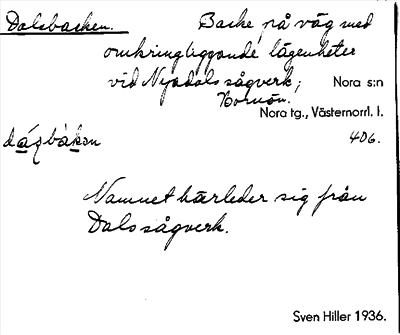 Dalsbacken. Backe på väg med
omkringliggande lägenheter
vid Nyadals sågverk; Nora s:n
Nora tg., Västernorrl. l.
406.
Namnet härleder sig från
Dals sågverk.
Sven Hiller 1936.